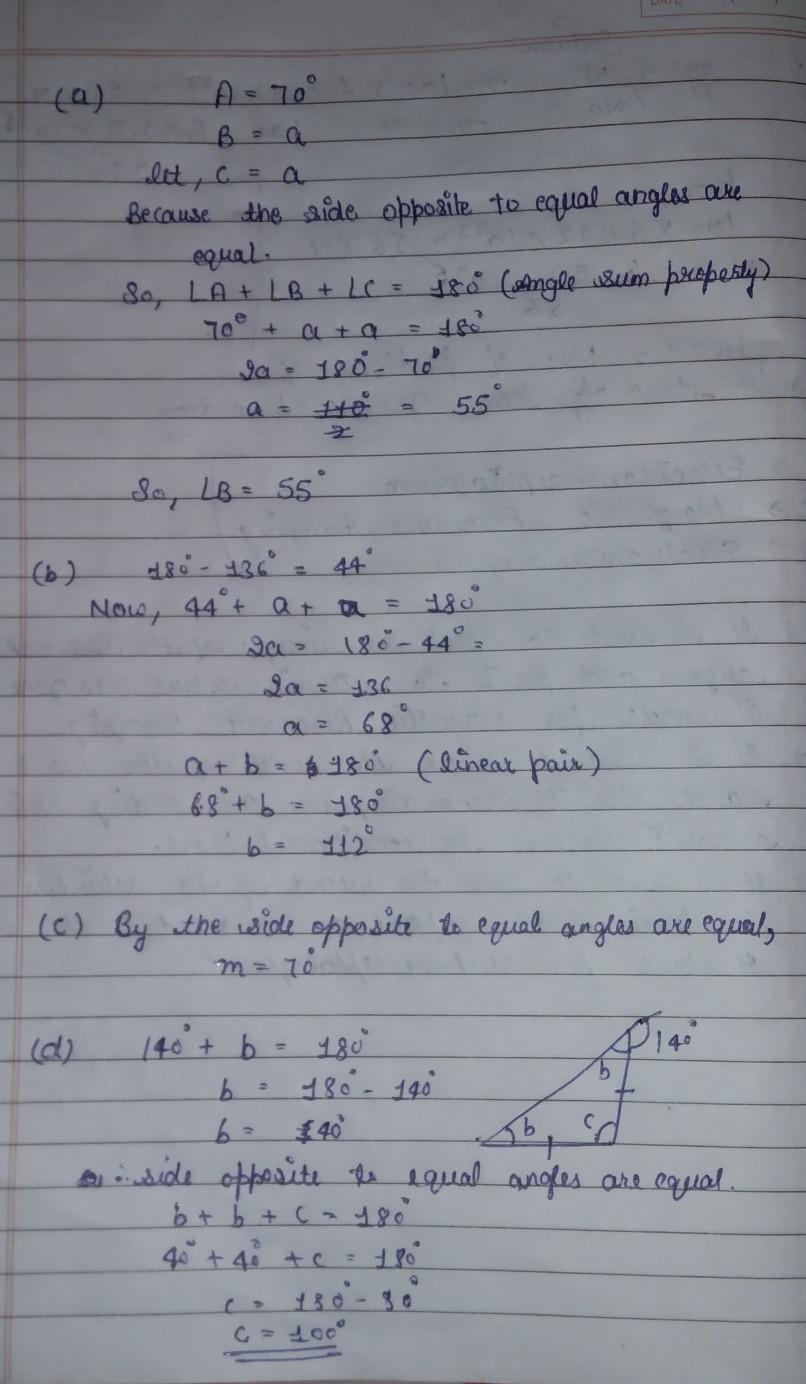 (a) A = 70°
B = a
let, C = a
Because the side opposite to equal angles are
equal.
So, ∠A + ∠B + ∠C = 180° (Angle sum property)
70° + a + a = 180°
2a = 180° - 70°
a = 110°/2 = 55°
So, ∠B = 55°
(b) 180° - 136° = 44°
Now, 44° + a + a = 180°
2a = 180° - 44° =
2a = 136
a = 68°
a + b = 180° (linear pair)
68° + b = 180°
b = 112°
(c) By the side opposite to equal angles are equal,
m = 70°
(d) 140° + b = 180°
b = 180° - 140°
b = 40°
140°
b
b c
∴ side opposite to equal angles are equal.
b + b + c = 180°
40° + 40° + c = 180°
c = 180° - 80°
c = 100°